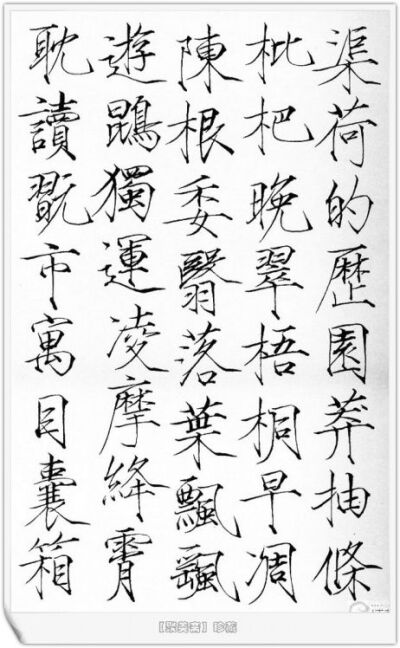 渠荷的歷園莽抽條
枇杷晚翠梧桐早凋
陳根委翳落葉飄颻
遊鵾獨運凌摩絳霄
耽讀翫市寓目囊箱
【聚美斋】珍藏